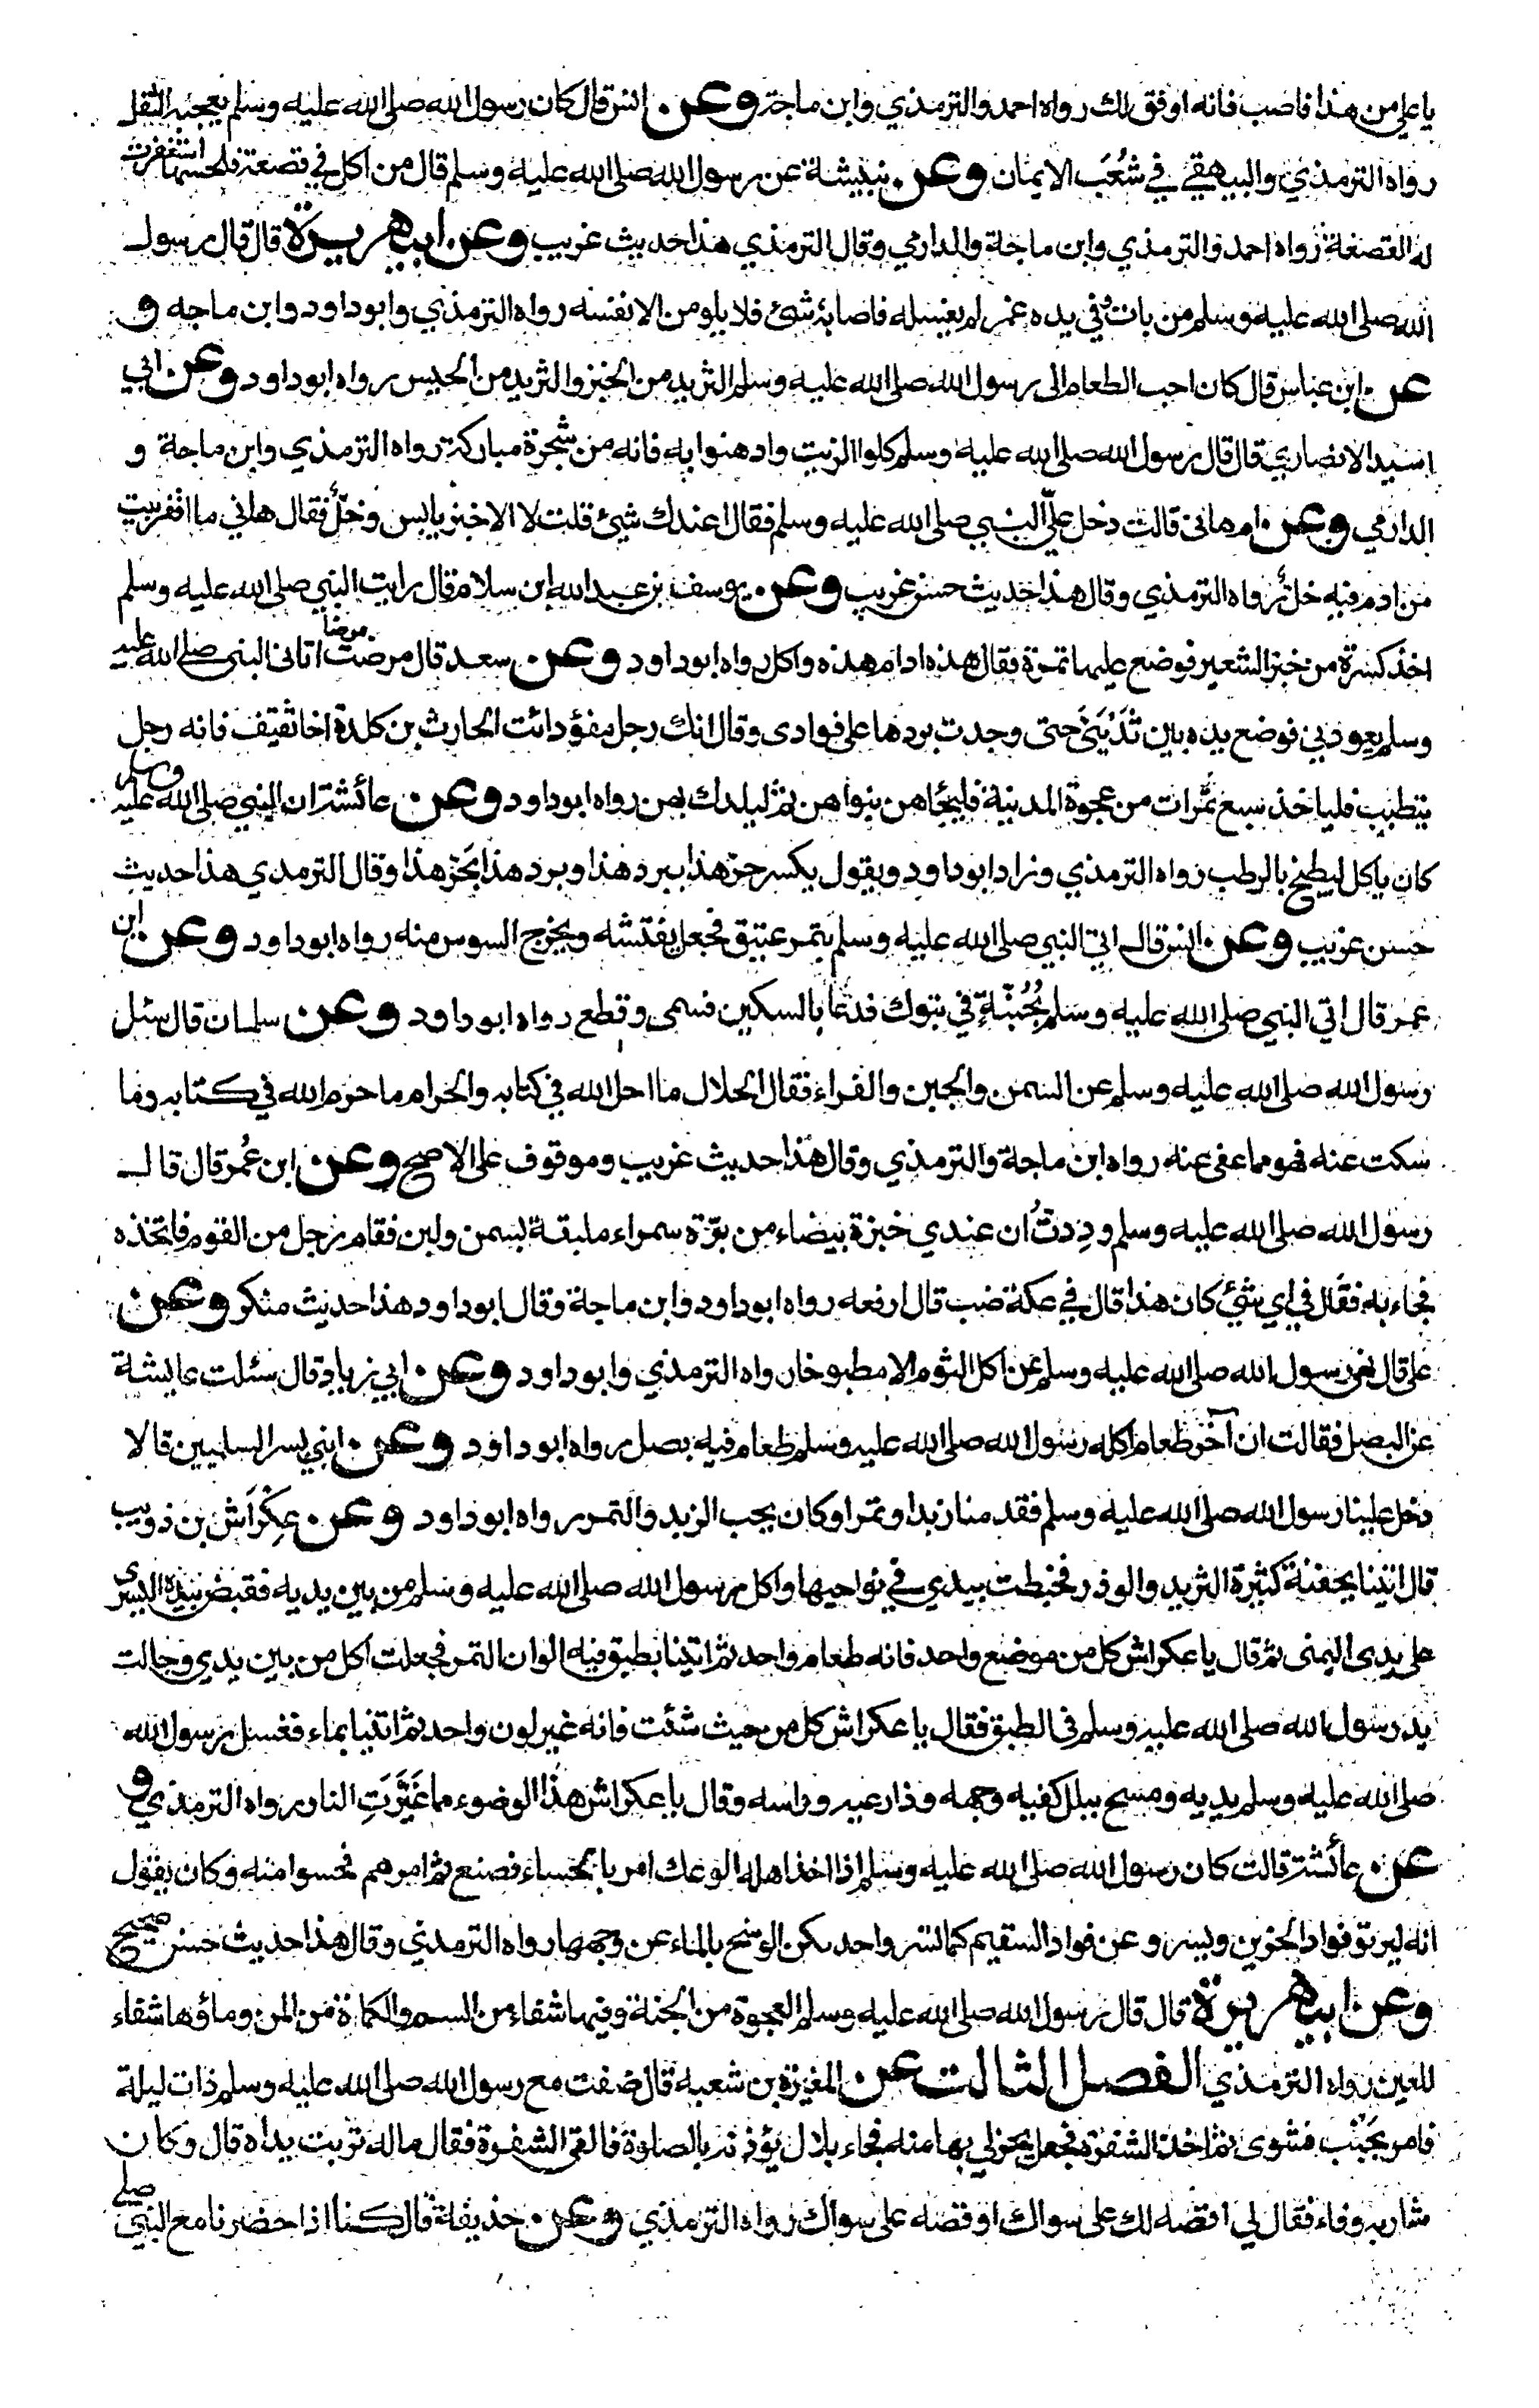 يا علي من هذا فاصب فانه اوفق لك رواه احمد والترمذي وابن ماجة وعن انس قال كان رسول الله صلى الله عليه وسلم يعجبه الثفل
رواه الترمذي والبيهقي في شُعَب الايمان وعن نبيشة عن رسول الله صلى الله عليه وسلم قال من اكل في قصعة فلحسها استغفرت
له القصعة رواه احمد والترمذي وابن ماجة والدارمي وقال الترمذي هذا حديث غريب وعن ابي هريرة قال قال رسول
الله صلى الله عليه وسلم من بات وفي يده غمر لم يغسله فاصابه شئ فلا يلومن الا نفسه رواه الترمذي وابوداود وابن ماجه و
عن ابن عباس قال كان احب الطعام الى رسول الله صلى الله عليه وسلم الثريد من الخبز والثريد من الحيس رواه ابوداود وعن ابي
اسيد الانصاري قال قال رسول الله صلى الله عليه وسلم كلوا الزيت وادهنوا به فانه من شجرة مباركة رواه الترمذي وابن ماجة و
الدارمي وعن ام هانئ قالت دخل عليّ النبي صلى الله عليه وسلم فقال اعندك شيئ قلت لا الا خبز يابس وخلّ فقال هاتي ما اقفر بيت
من ادم فيه خل رواه الترمذي وقال هذا حديث حسن غريب وعن يوسف بن عبد الله ابن سلام قال رايت النبي صلى الله عليه وسلم
اخذ كسرة من خبز الشعير فوضع عليها تمرة فقال هذه ادام هذه واكل رواه ابوداود وعن سعد قال مرضت مرضا اتانى النبي صلى الله عليه
وسلم يعودني فوضع يده بين ثَدْيَيَّ حتى وجدت بردها على فوادى وقال انك رجل مفؤد ائت الحارث بن كلدة اخا ثقيف فانه رجل
يتطبب فلياخذ سبع تمرات من عجوة المدينة فليجأهن بنواهن ثم ليلدك بهن رواه ابوداود وعن عائشة ان النبي صلى الله عليه وسلم
كان ياكل البطيخ بالرطب رواه الترمذي وزاد ابوداود ويقول يكسر حرّ هذا ببرد هذا وبرد هذا بحَرّ هذا وقال الترمذي هذا حديث
حسن غريب وعن انس قال اتي النبي صلى الله عليه وسلم بتمر عتيق فجعل يفتشه ويخرج السوس منه رواه ابوداود وعن ابن
عمر قال اتي النبي صلى الله عليه وسلم بجُبُنّةٍ في تبوك فدعا بالسكين فسمى وقطع رواه ابوداود وعن سلمان قال سئل
رسول الله صلى الله عليه وسلم عن السمن والجبن والفراء فقال الحلال ما احل الله في كتابه والحرام ما حرم الله في كتابه وما
سكت عنه فهو مما عفى عنه رواه ابن ماجة والترمذي وقال هذا حديث غريب وموقوف على الاصح وعن ابن عُمر قال قال
رسول الله صلى الله عليه وسلم وددتُ ان عندي خبزة بيضاء من برّة سمراء ملبقة بسمن ولبن فقام رجل من القوم فاتخذه
فجاء به فقال في اي شئ كان هذا قال في عكة ضب قال ارفعه رواه ابوداود وابن ماجة وقال ابوداود هذا حديث منكر وعن
علي قال نهى رسول الله صلى الله عليه وسلم عن اكل الثوم الا مطبوخا رواه الترمذي وابوداود وعن ابي زياد قال سئلت عايشة
عن البصل فقالت ان آخر طعام اكله رسول الله صلى الله عليه وسلم طعام فيه بصل رواه ابوداود وعن ابني بسر السلميين قالا
دخل علينا رسول الله صلى الله عليه وسلم فقدمنا زبدا وتمرا وكان يحب الزبد والتمر رواه ابوداود وعن عِكْرَاش بن ذويب
قال اتينا بجفنة كثيرة الثريد والوذر فخبطت بيدي في نواحيها واكل رسول الله صلى الله عليه وسلم من بين يديه فقبض بيده اليسرى
على يدى اليمنى ثم قال يا عكراش كل من موضع واحد فانه طعام واحد ثم اتينا بطبق فيه الوان التمر فجعلت اكل من بين يدي وجالت
يد رسول الله صلى الله عليه وسلم في الطبق فقال يا عكراش كل من حيث شئت فانه غير لون واحد ثم اتينا بماء فغسل رسول الله
صلى الله عليه وسلم يديه ومسح ببلل كفيه وجهه وذراعيه وراسه وقال يا عكراش هذا الوضوء مما غَيَّرَتِ النار رواه الترمذي و
عن عائشة قالت كان رسول الله صلى الله عليه وسلم اذا اخذ اهله الوعك امر بالحساء فصنع ثم امرهم فحسوا منه وكان يقول
انه ليرتو فواد الحزين ويسرو عن فواد السقيم كما تسرو احديكن الوسخ بالماء عن وجهها رواه الترمذي وقال هذا حديث حسن صحيح
وعن ابي هريرة قال قال رسول الله صلى الله عليه وسلم العجوة من الجنة وفيها شفاء من السم والكماة من المن وماؤها شفاء
للعين رواه الترمذي الفصل الثالث عن المغيرة بن شعبه قال ضفت مع رسول الله صلى الله عليه وسلم ذات ليلة
فامر بجَنْب فشوى ثم اخذ الشفرة فجعل يحز لي بها منه فجاء بلال يؤذنه بالصلوة فالقى الشفرة فقال ماله تربت يداه قال وكان
شاربه وفاء فقال لي اقصه لك على سواك او قصه على سواك رواه الترمذي وعن حذيفة قال كنا اذا حضرنا مع النبي صلى